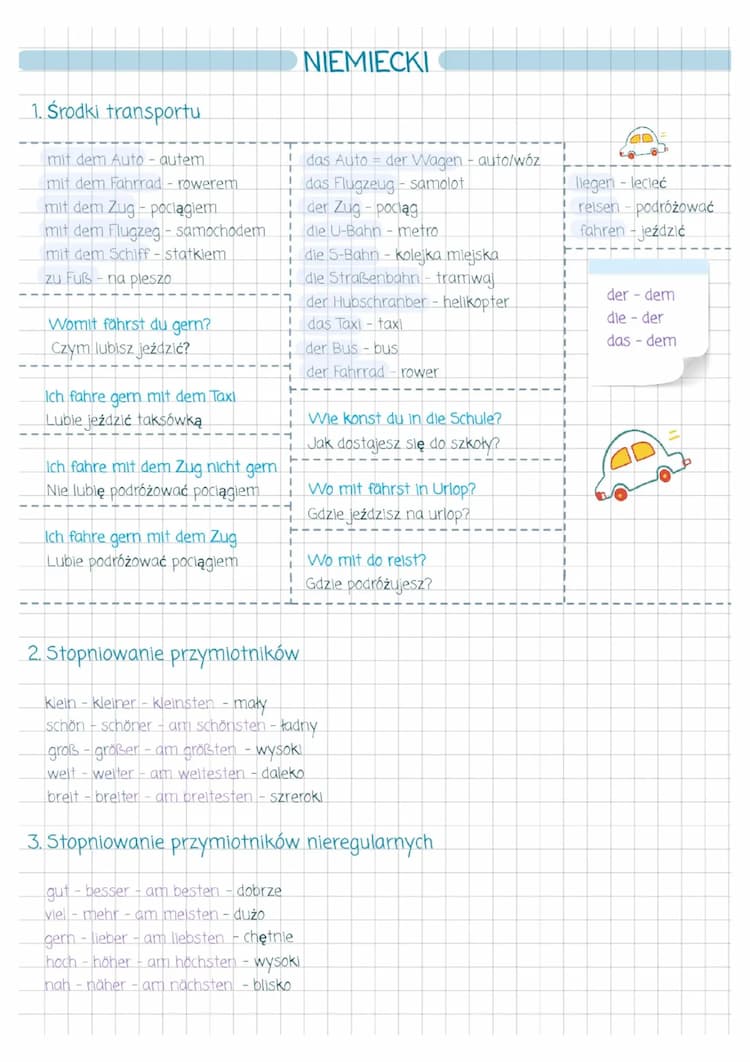 NIEMIECKI
1. Środki transportu
mit dem Auto - autem
mit dem Fahrrad - rowerem
mit dem Zug - pociągiem
mit dem Flugzeg - samochodem
mit dem Schiff - statkiem
zu Fuß - na pieszo
Womit fährst du gern?
Czym lubisz jeździć?
Ich fahre gern mit dem Taxi
Lubie jeździć taksówką
Ich fahre mit dem Zug nicht gern
Nie lubię podróżować pociągiem
Ich fahre gern mit dem Zug
Lubie podróżować pociągiem
das Auto = der Wagen - auto/wóz
das Flugzeug - samolot
der Zug - pociąg
die U-Bahn - metro
die S-Bahn - kolejka miejska
die Straßenbahn - tramwaj
der Hubschranber - helikopter
das Taxi - taxi
der Bus - bus
der Fahrrad - rower
Wie konst du in die Schule?
Jak dostajesz się do szkoły?
Wo mit fährst in Urlop?
Gdzie jeździsz na urlop?
Wo mit do reist?
Gdzie podróżujesz?
liegen - lecieć
reisen - podróżować
fahren - jeździć
der - dem
die - der
das - dem
2. Stopniowanie przymiotników
klein - kleiner - kleinsten - mały
schön - schöner - am schönsten - ładny
groß - größer - am größten - wysoki
weit - weiter - am weitesten - daleko
breit - breiter - am breitesten - szreroki
3. Stopniowanie przymiotników nieregularnych
gut - besser - am besten - dobrze
viel - mehr - am meisten - dużo
gern - lieber - am liebsten - chętnie
hoch - höher - am höchsten - wysoki
nah - näher - am nächsten - blisko